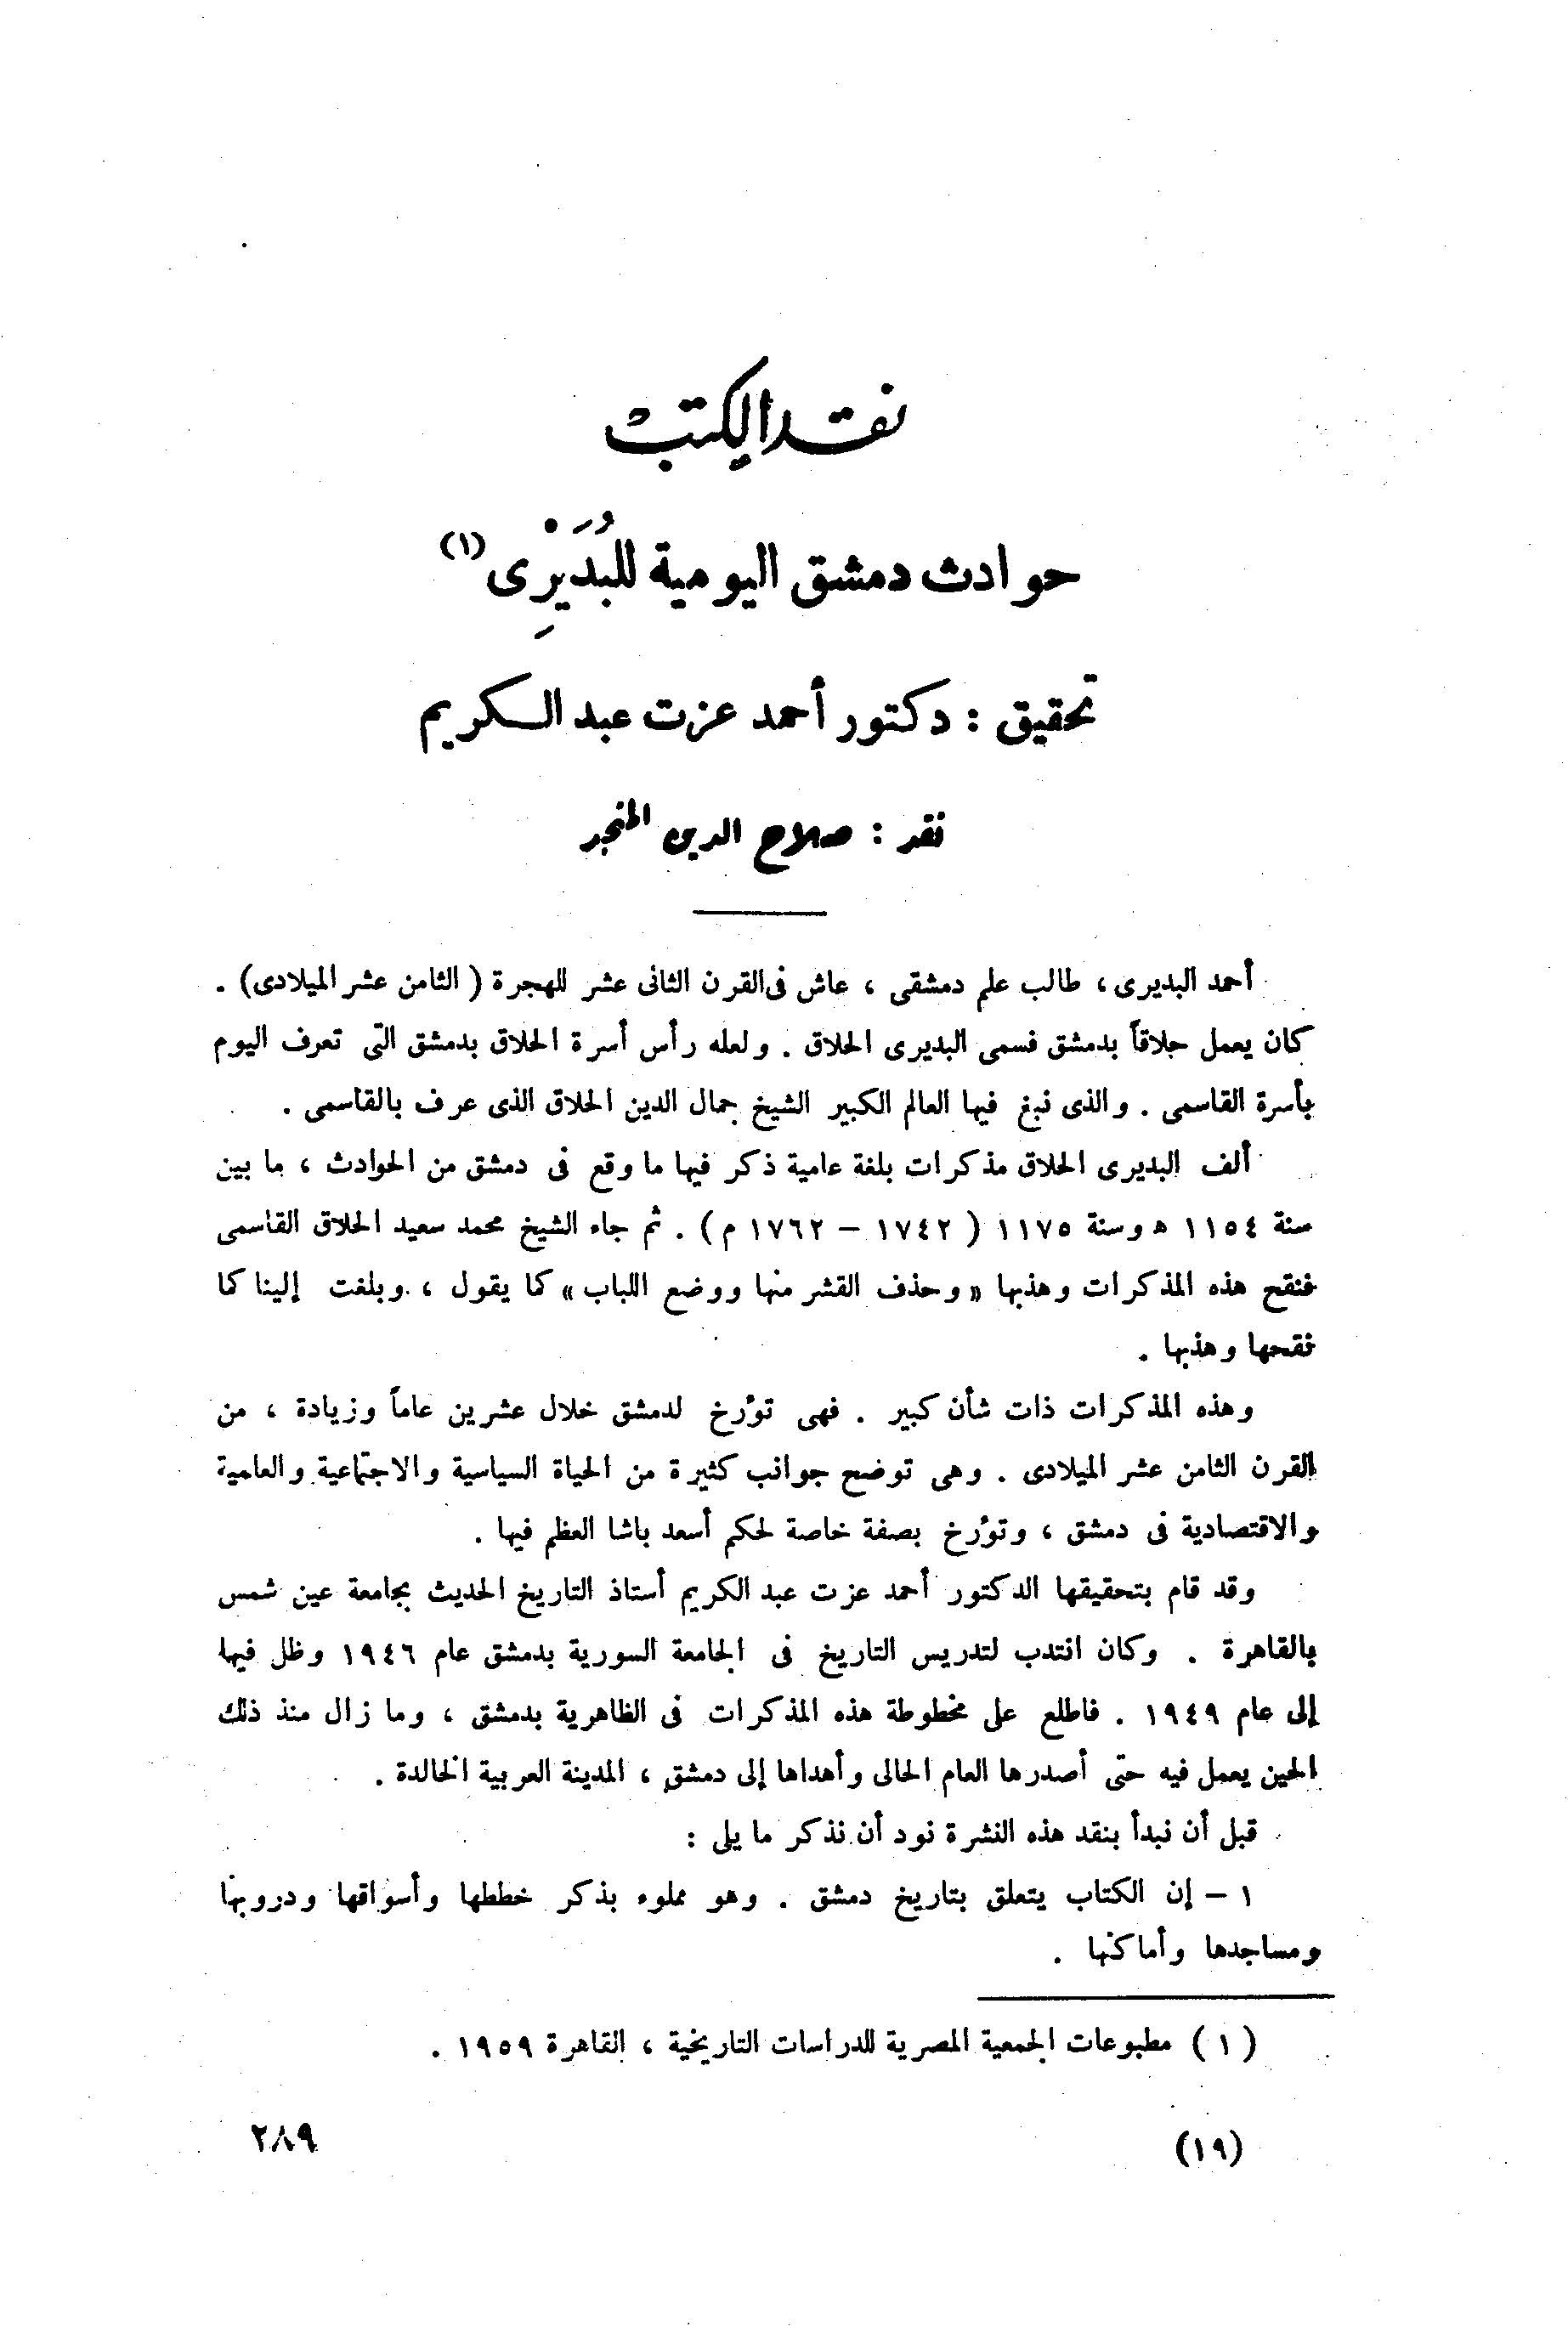 نقد الكتب
حوادث دمشق اليومية للبُدَيْرِى (١)
تحقيق : دكتور أحمد عزت عبد الكريم
نقد : صلاح الدين المنجد
أحمد البديرى ، طالب علم دمشقى ، عاش فى القرن الثانى عشر للهجرة ( الثامن عشر الميلادى ) .
كان يعمل حلاقاً بدمشق فسمى البديرى الحلاق . ولعله رأس أسرة الحلاق بدمشق التى تعرف اليوم
بأسرة القاسمى . والذى نبغ فيها العالم الكبير الشيخ جمال الدين الحلاق الذى عرف بالقاسمى .
ألف البديرى الحلاق مذكرات بلغة عامية ذكر فيها ما وقع فى دمشق من الحوادث ، ما بين
سنة ١١٥٤ ه وسنة ١١٧٥ ( ١٧٤٢ – ١٧٦٢ م ) . ثم جاء الشيخ محمد سعيد الحلاق القاسمى
فنقح هذه المذكرات وهذبها « وحذف القشر منها ووضع اللباب » كما يقول ، وبلغت إلينا كما
نقحها وهذبها .
وهذه المذكرات ذات شأن كبير . فهى تؤرخ لدمشق خلال عشرين عاماً وزيادة ، من
القرن الثامن عشر الميلادى . وهى توضح جوانب كثيرة من الحياة السياسية والاجتماعية والعامية
والاقتصادية فى دمشق ، وتؤرخ بصفة خاصة لحكم أسعد باشا العظم فيها .
وقد قام بتحقيقها الدكتور أحمد عزت عبد الكريم أستاذ التاريخ الحديث بجامعة عين شمس
بالقاهرة . وكان انتدب لتدريس التاريخ فى الجامعة السورية بدمشق عام ١٩٤٦ وظل فيها
إلى عام ١٩٤٩ . فاطلع على مخطوطة هذه المذكرات فى الظاهرية بدمشق ، وما زال منذ ذلك
الحين يعمل فيه حتى أصدرها العام الحالى وأهداها إلى دمشق ، المدينة العربية الخالدة .
قبل أن نبدأ بنقد هذه النشرة نود أن نذكر ما يلى :
١ – إن الكتاب يتعلق بتاريخ دمشق . وهو مملوء بذكر خططها وأسواقها ودروبها
ومساجدها وأماكنها .
( ١ ) مطبوعات الجمعية المصرية للدراسات التاريخية ، القاهرة ١٩٥٩ .
(١٩)
٢٨٩